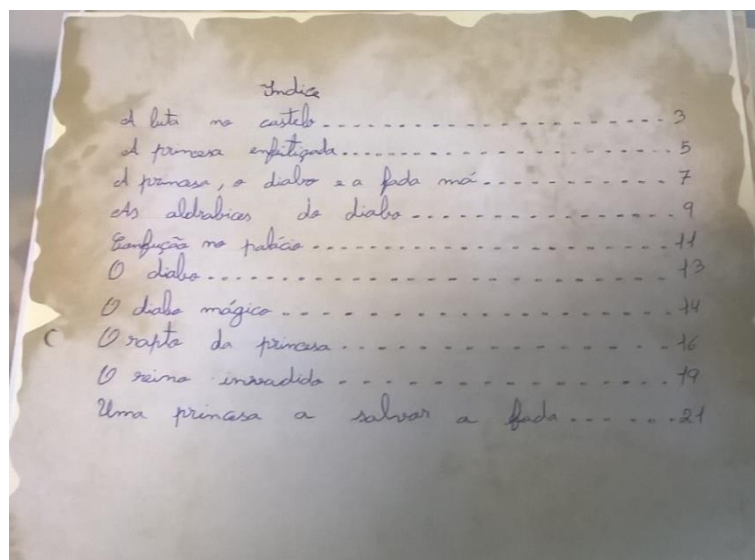 Indice
A luta no castelo...........................3
A princesa enfeitiçada...........................5
A princesa, o diabo e a fada má...........................7
As aldrabices do diabo...........................9
Confução no palácio...........................11
O diabo...........................13
O diabo mágico...........................14
O rapto da princesa...........................16
O reino invadido...........................19
Uma princesa a salvar a fada...........................21